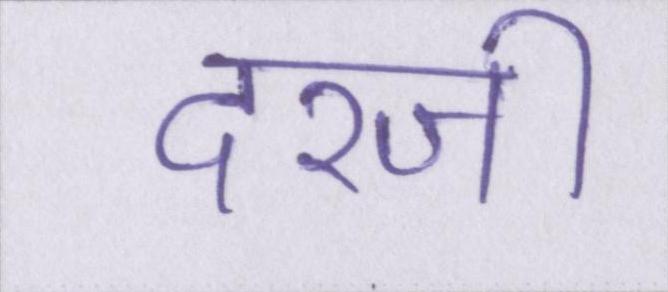 दरजी